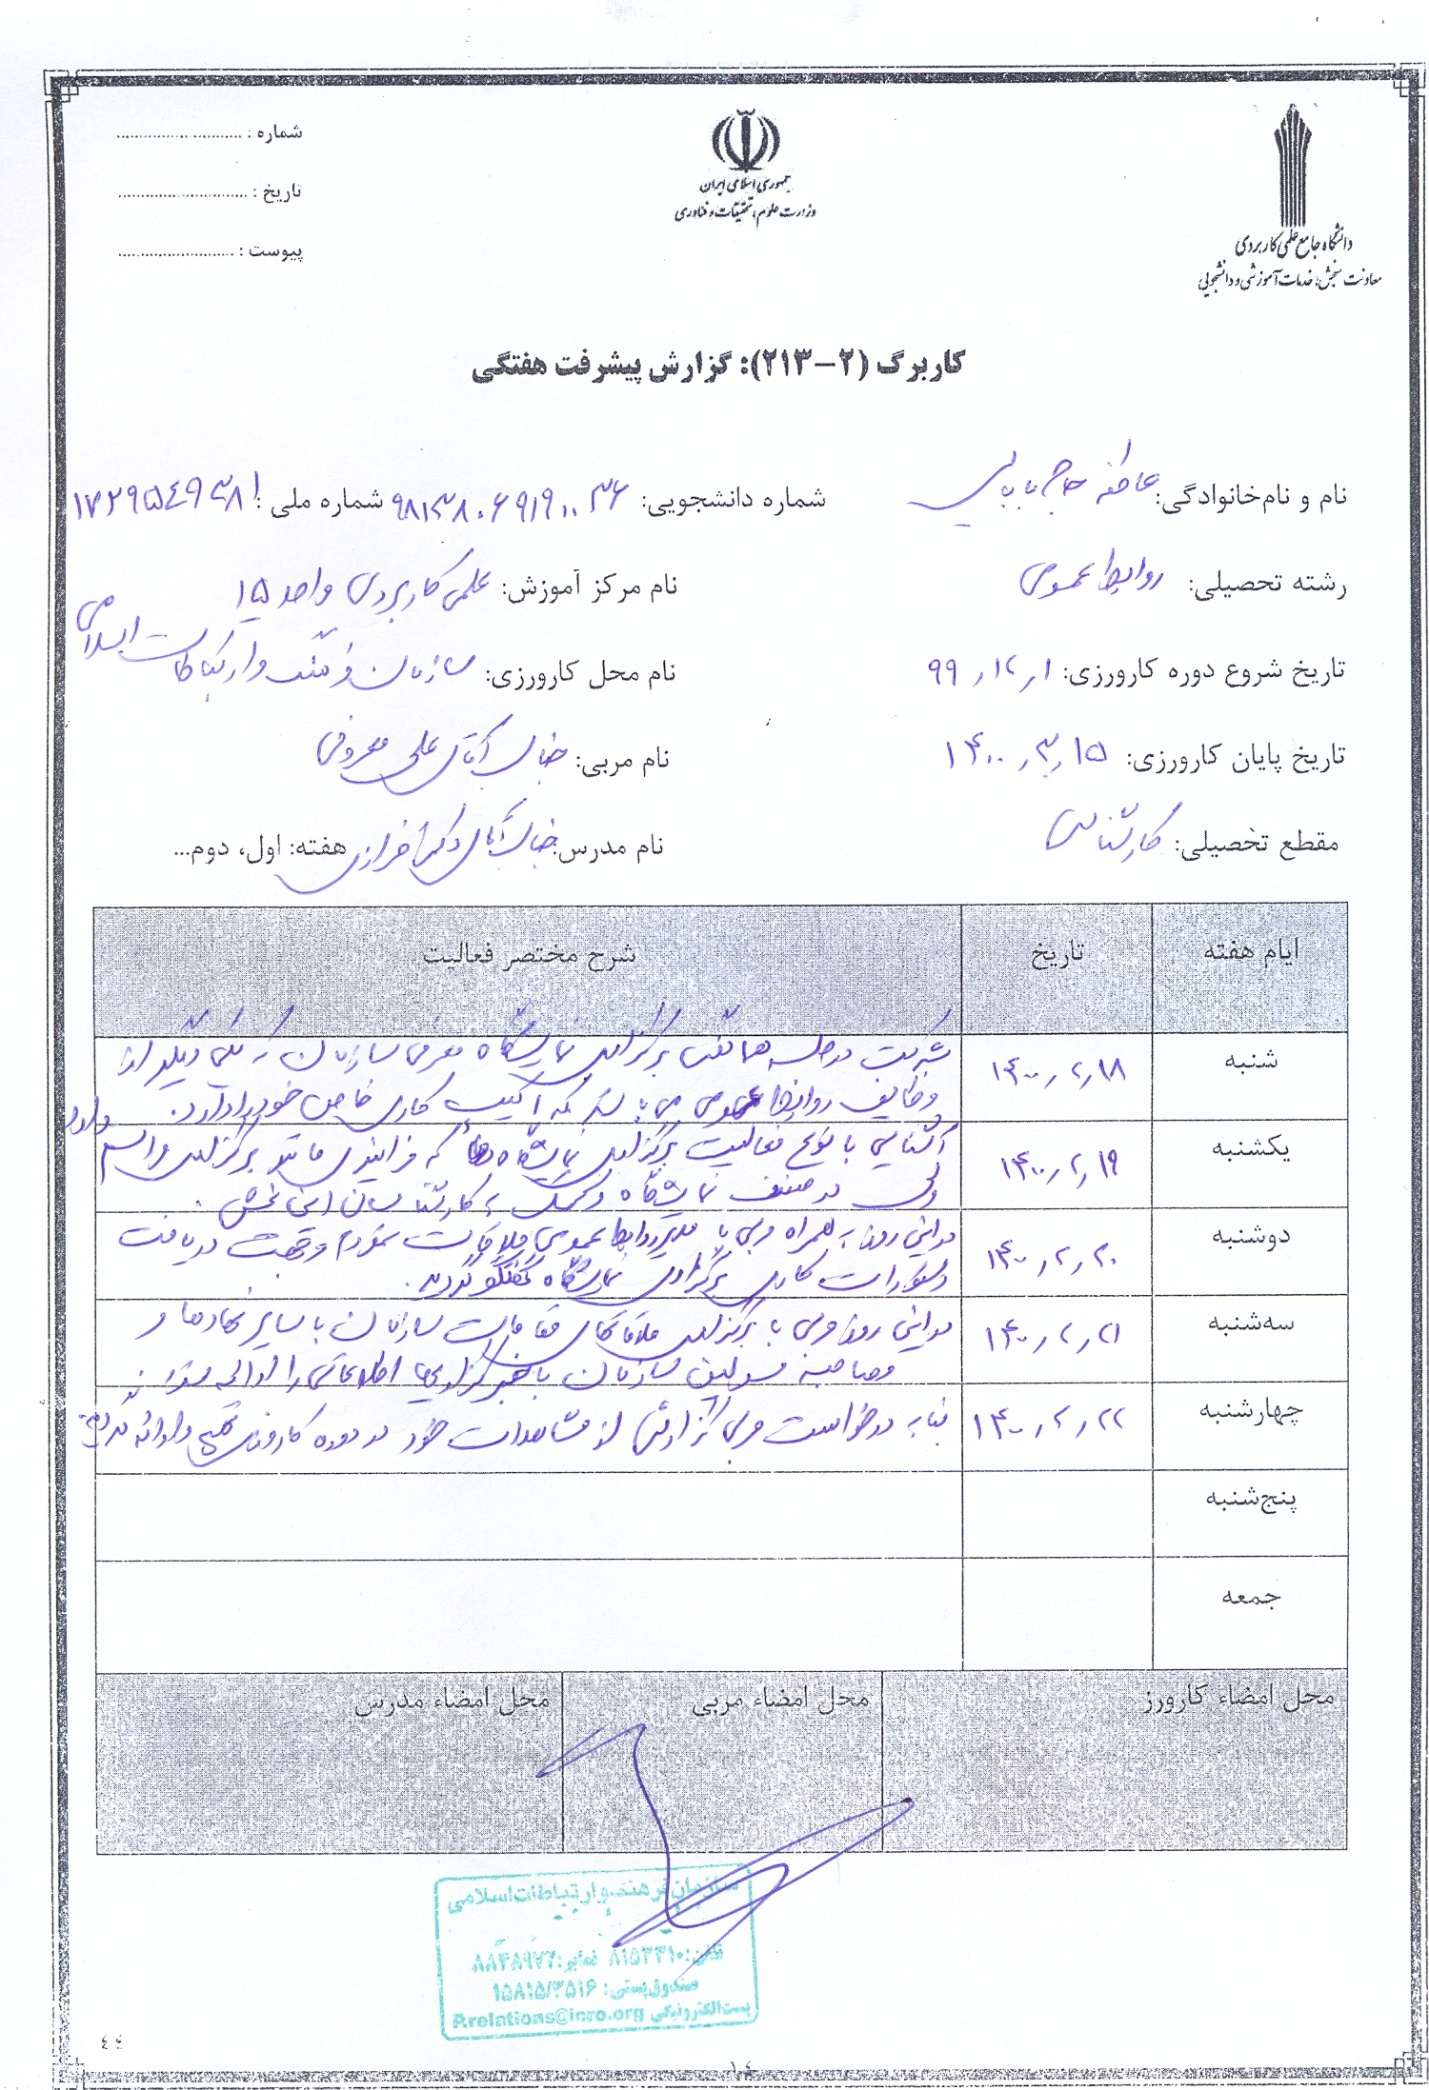 شماره : ..............................
تاریخ : ..............................
پیوست : ..............................
جمهوری اسلامی ایران
وزارت علوم، تحقیقات و فناوری
دانشگاه جامع علمی کاربردی
معاونت سنجش، خدمات آموزشی و دانشجویی
کاربرگ (۲-۲۱۳): گزارش پیشرفت هفتگی
نام و نام‌خانوادگی: عاطفه حاج بابایی شماره دانشجویی: شماره ملی:
رشته تحصیلی: روابط عمومی نام مرکز آموزش: علمی کاربردی واحد ۱۵
تاریخ شروع دوره کارورزی: ۹۹،۱۲،۱ نام محل کارورزی: سازمان فرهنگ و ارتباطات اسلامی
تاریخ پایان کارورزی: ۱۴۰۰،۳،۱۵ نام مربی: جناب آقای علی معروفی
مقطع تحصیلی: کارشناسی نام مدرس: جناب آقای دکتر افرازی هفته: اول، دوم...
ایام هفته تاریخ شرح مختصر فعالیت
شنبه ۱۴۰۰،۲،۱۸ شرکت در جلسه هماهنگی برگزاری نمایشگاه معرفی سازمان که یکی دیگر از
وظایف روابط عمومی می باشد که اکیپ کاری خاص خود را دارد.
یکشنبه ۱۴۰۰،۲،۱۹ آشنایی با نوع فعالیت برگزاری نمایشگاه ها که فرایندی مانند برگزاری مراسم دارد
ولی در صنف نمایشگاه و کمک به کارشناسان این بخش.
دوشنبه ۱۴۰۰،۲،۲۰ در این روز به همراه مربی با مدیر روابط عمومی ملاقات نمودم و جهت دریافت
دستورات کاری برگزاری نمایشگاه گفتگو گردید.
سه‌شنبه ۱۴۰۰،۲،۲۱ در این روز مربی با برگزاری ملاقاتهای مقامات سازمان با سایر نهادها و
مصاحبه مسولین سازمان با خبرگزاریها اطلاعاتی را ارائه نمودند
چهارشنبه ۱۴۰۰،۲،۲۲ بنا به درخواست مربی گزارشی از مشاهدات خود در دوره کارورزی تهیه و ارائه گردید.
پنج‌شنبه
جمعه
محل امضاء کارورز محل امضاء مربی محل امضاء مدرس
سازمان فرهنگ و ارتباطات اسلامی
تلفن: ۸۱۵۳۳۱۰ نمابر:
صندوق پستی: ۱۵۸۱۵/۳۵۱۶
پست الکترونیکی P.relations@icro.org
٤٤
١٤